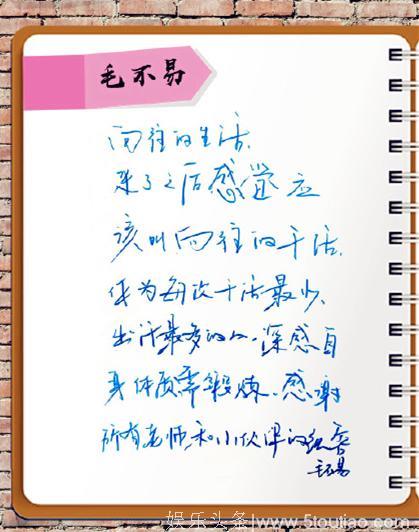 毛不易
向往的生活.
来了之后感觉应
该叫向往的干活.
作为每次干活最少.
出汗最多的人.深感自
身体质需锻炼.感谢
所有老师和小伙伴的
毛不易
娱乐头条@www.5toutiao.com